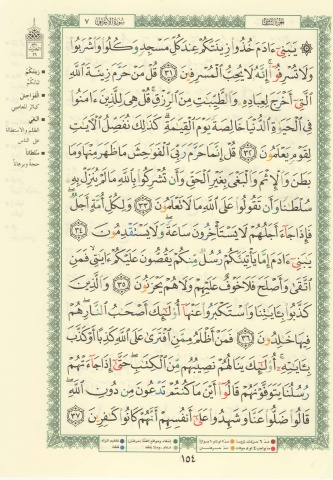 ٧ سورة الأعراف الجزء الثامن
۞ يَـٰبَنِىٓ ءَادَمَ خُذُوا۟ زِينَتَكُمْ عِندَ كُلِّ مَسْجِدٍ وَكُلُوا۟ وَٱشْرَبُوا۟
وَلَا تُسْرِفُوٓا۟ ۚ إِنَّهُۥ لَا يُحِبُّ ٱلْمُسْرِفِينَ ٣١ قُلْ مَنْ حَرَّمَ زِينَةَ ٱللَّهِ
ٱلَّتِىٓ أَخْرَجَ لِعِبَادِهِۦ وَٱلطَّيِّبَـٰتِ مِنَ ٱلرِّزْقِ ۚ قُلْ هِىَ لِلَّذِينَ ءَامَنُوا۟
فِى ٱلْحَيَوٰةِ ٱلدُّنْيَا خَالِصَةً يَوْمَ ٱلْقِيَـٰمَةِ ۗ كَذَٰلِكَ نُفَصِّلُ ٱلْـَٔايَـٰتِ
لِقَوْمٍ يَعْلَمُونَ ٣٢ قُلْ إِنَّمَا حَرَّمَ رَبِّىَ ٱلْفَوَٰحِشَ مَا ظَهَرَ مِنْهَا وَمَا
بَطَنَ وَٱلْإِثْمَ وَٱلْبَغْىَ بِغَيْرِ ٱلْحَقِّ وَأَن تُشْرِكُوا۟ بِٱللَّهِ مَا لَمْ يُنَزِّلْ بِهِۦ
سُلْطَـٰنًا وَأَن تَقُولُوا۟ عَلَى ٱللَّهِ مَا لَا تَعْلَمُونَ ٣٣ وَلِكُلِّ أُمَّةٍ أَجَلٌ ۖ
فَإِذَا جَآءَ أَجَلُهُمْ لَا يَسْتَأْخِرُونَ سَاعَةً ۖ وَلَا يَسْتَقْدِمُونَ ٣٤
يَـٰبَنِىٓ ءَادَمَ إِمَّا يَأْتِيَنَّكُمْ رُسُلٌ مِّنكُمْ يَقُصُّونَ عَلَيْكُمْ ءَايَـٰتِى ۙ فَمَنِ
ٱتَّقَىٰ وَأَصْلَحَ فَلَا خَوْفٌ عَلَيْهِمْ وَلَا هُمْ يَحْزَنُونَ ٣٥ وَٱلَّذِينَ
كَذَّبُوا۟ بِـَٔايَـٰتِنَا وَٱسْتَكْبَرُوا۟ عَنْهَآ أُو۟لَـٰٓئِكَ أَصْحَـٰبُ ٱلنَّارِ ۖ هُمْ
فِيهَا خَـٰلِدُونَ ٣٦ فَمَنْ أَظْلَمُ مِمَّنِ ٱفْتَرَىٰ عَلَى ٱللَّهِ كَذِبًا أَوْ كَذَّبَ
بِـَٔايَـٰتِهِۦٓ ۚ أُو۟لَـٰٓئِكَ يَنَالُهُمْ نَصِيبُهُم مِّنَ ٱلْكِتَـٰبِ ۖ حَتَّىٰٓ إِذَا جَآءَتْهُمْ
رُسُلُنَا يَتَوَفَّوْنَهُمْ قَالُوٓا۟ أَيْنَ مَا كُنتُمْ تَدْعُونَ مِن دُونِ ٱللَّهِ ۖ
قَالُوا۟ ضَلُّوا۟ عَنَّا وَشَهِدُوا۟ عَلَىٰٓ أَنفُسِهِمْ أَنَّهُمْ كَانُوا۟ كَـٰفِرِينَ ٣٧
زينتكم
الفواحش
كبائر المعاصي
البغي
الظلم والاستطالة
على الناس
سلطانا
حجة وبرهانا
١٥٤